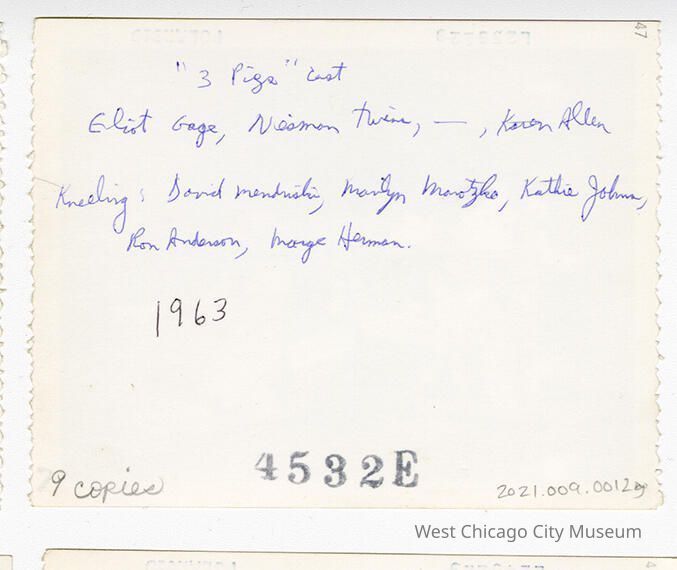 47
"3 Pigs" Cast
Eliot Gage, Neisman Twins, — , Karen Allen
Kneeling: David Mendriski, Marilyn Marotzke, Kathie Johns,
Ron Anderson, Marge Herman.
1963
4532E
9 copies
2021.009.0012
West Chicago City Museum